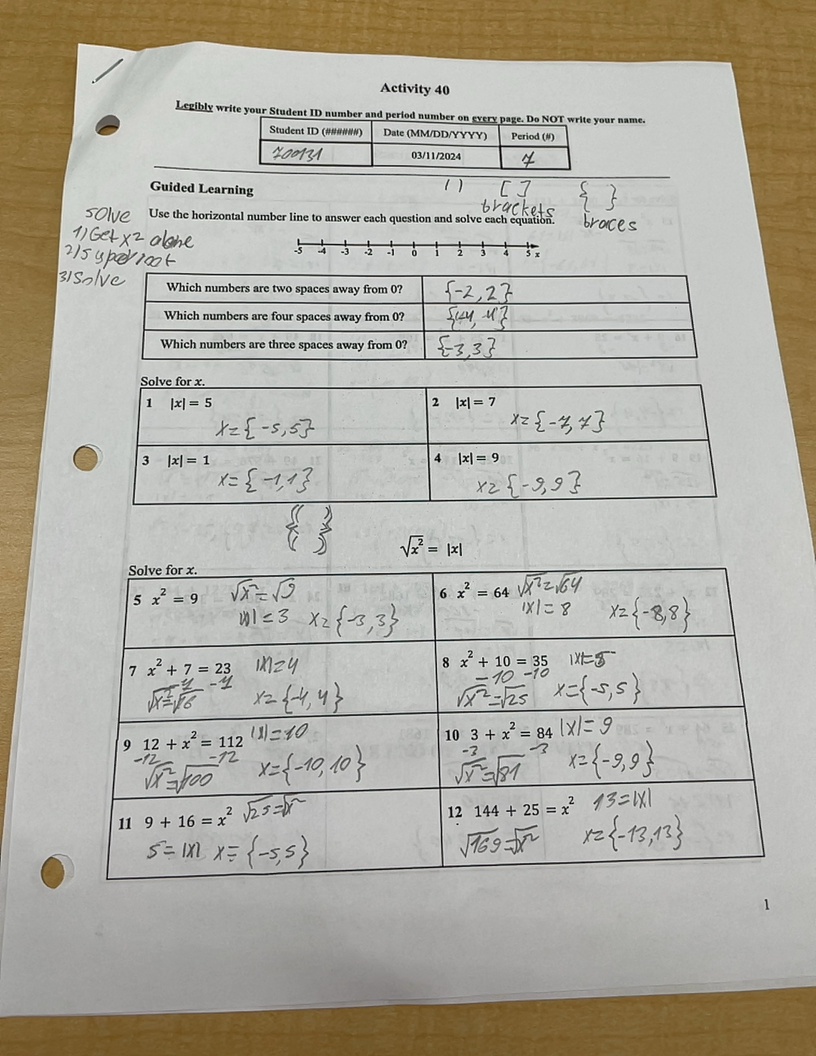 Activity 40
Legibly write your Student ID number and period number on every page. Do NOT write your name.
Student ID (######) Date (MM/DD/YYYY) Period (#)
700131 03/11/2024 7
Guided Learning
( ) [ ] { }
brackets braces
Use the horizontal number line to answer each question and solve each equation.
Solve
1) Get x2 alone
2)
3) Solve
-5 -4 -3 -2 -1 0 1 2 3 4 5 x
Which numbers are two spaces away from 0? {-2, 2}
Which numbers are four spaces away from 0? {-4, 4}
Which numbers are three spaces away from 0? {-3,3}
Solve for x.
1 |x| = 5
x={-5,5}
2 |x| = 7
x={-7,7}
3 |x| = 1
x={-1,1}
4 |x| = 9
x={-9,9}
{ }
√x² = |x|
Solve for x.
5 x² = 9 √x²=√9
|x|=3 x={-3,3}
6 x² = 64 √x²=√64
|x|=8 x={-8,8}
7 x² + 7 = 23 |x|=4
-7 -7
√x²=√16 x={-4,4}
8 x² + 10 = 35 |x|=5
-10 -10
√x²=√25 x={-5,5}
9 12 + x² = 112 |x|=10
-12 -12
√x²=√100 x={-10,10}
10 3 + x² = 84 |x|=9
-3 -3
√x²=√81 x={-9,9}
11 9 + 16 = x² √25=√x²
5=|x| x={-5,5}
12 144 + 25 = x² 13=|x|
√169=√x² x={-13,13}
1